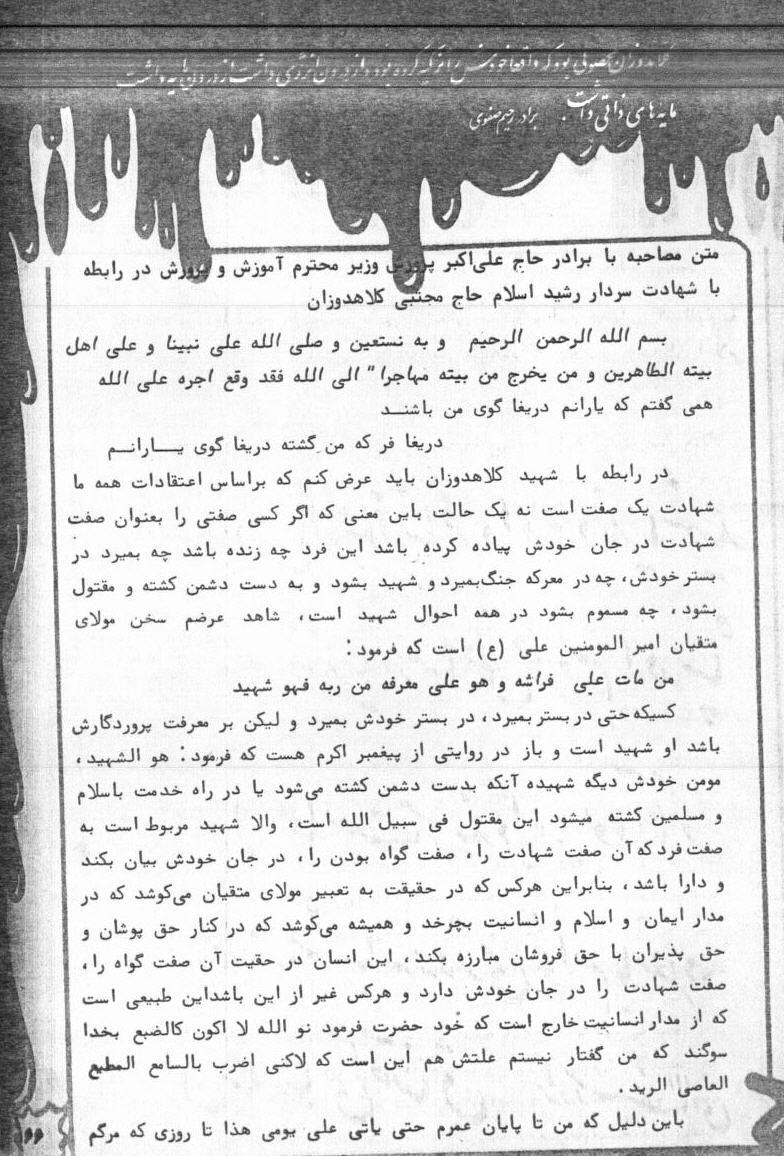 کلاهدوزان محصولی بود که واقعا خودش را تزکیه کرده بود و از درون انرژی داشت از درون مایه داشت
مایه‌های ذاتی داشت. برادر رحیم صفوی
متن مصاحبه با برادر حاج علی‌اکبر پرورش وزیر محترم آموزش و پرورش در رابطه
با شهادت سردار رشید اسلام حاج مجتبی کلاهدوزان
بسم الله الرحمن الرحیم و به نستعین و صلی الله علی نبینا و علی اهل
بیته الطاهرین و من یخرج من بیته مهاجرا" الی الله فقد وقع اجره علی الله
همی گفتم که یارانم دریغا گوی من باشنــد
دریغا فر که من گشته دریغا گوی یـــارانــم
در رابطه با شهید کلاهدوزان باید عرض کنم که براساس اعتقادات همه ما
شهادت یک صفت است نه یک حالت باین معنی که اگر کسی صفتی را بعنوان صفت
شهادت در جان خودش پیاده کرده باشد این فرد چه زنده باشد چه بمیرد در
بستر خودش، چه در معرکه جنگ‌بمیرد و شهید بشود و به دست دشمن کشته و مقتول
بشود، چه مسموم بشود در همه احوال شهید است، شاهد عرضم سخن مولای
متقیان امیر المومنین علی (ع) است که فرمود:
من مات علی فراشه و هو علی معرفه من ربه فهو شهید
کسیکه حتی در بستر بمیرد، در بستر خودش بمیرد و لیکن بر معرفت پروردگارش
باشد او شهید است و باز در روایتی از پیغمبر اکرم هست که فرمود: هو الشهید،
مومن خودش دیگه شهیده آنکه بدست دشمن کشته می‌شود یا در راه خدمت باسلام
و مسلمین کشته میشود این مقتول فی سبیل الله است، والا شهید مربوط است به
صفت فرد که آن صفت شهادت را، صفت گواه بودن را، در جان خودش بیان بکند
و دارا باشد، بنابراین هرکس که در حقیقت به تعبیر مولای متقیان می‌کوشد که در
مدار ایمان و اسلام و انسانیت بچرخد و همیشه می‌کوشد که در کنار حق پوشان و
حق پذیران با حق فروشان مبارزه بکند، این انسان در حقیت آن صفت گواه را،
صفت شهادت را در جان خودش دارد و هرکس غیر از این باشداین طبیعی است
که از مدار انسانیت خارج است که خود حضرت فرمود نو الله لا اکون کالضبع بخدا
سوگند که من گفتار نیستم علتش هم این است که لاکنی اضرب بالسامع المطیع
العاصی الرید.
باین دلیل که من تا پایان عمرم حتی یاتی علی یومی هذا تا روزی که مرگم